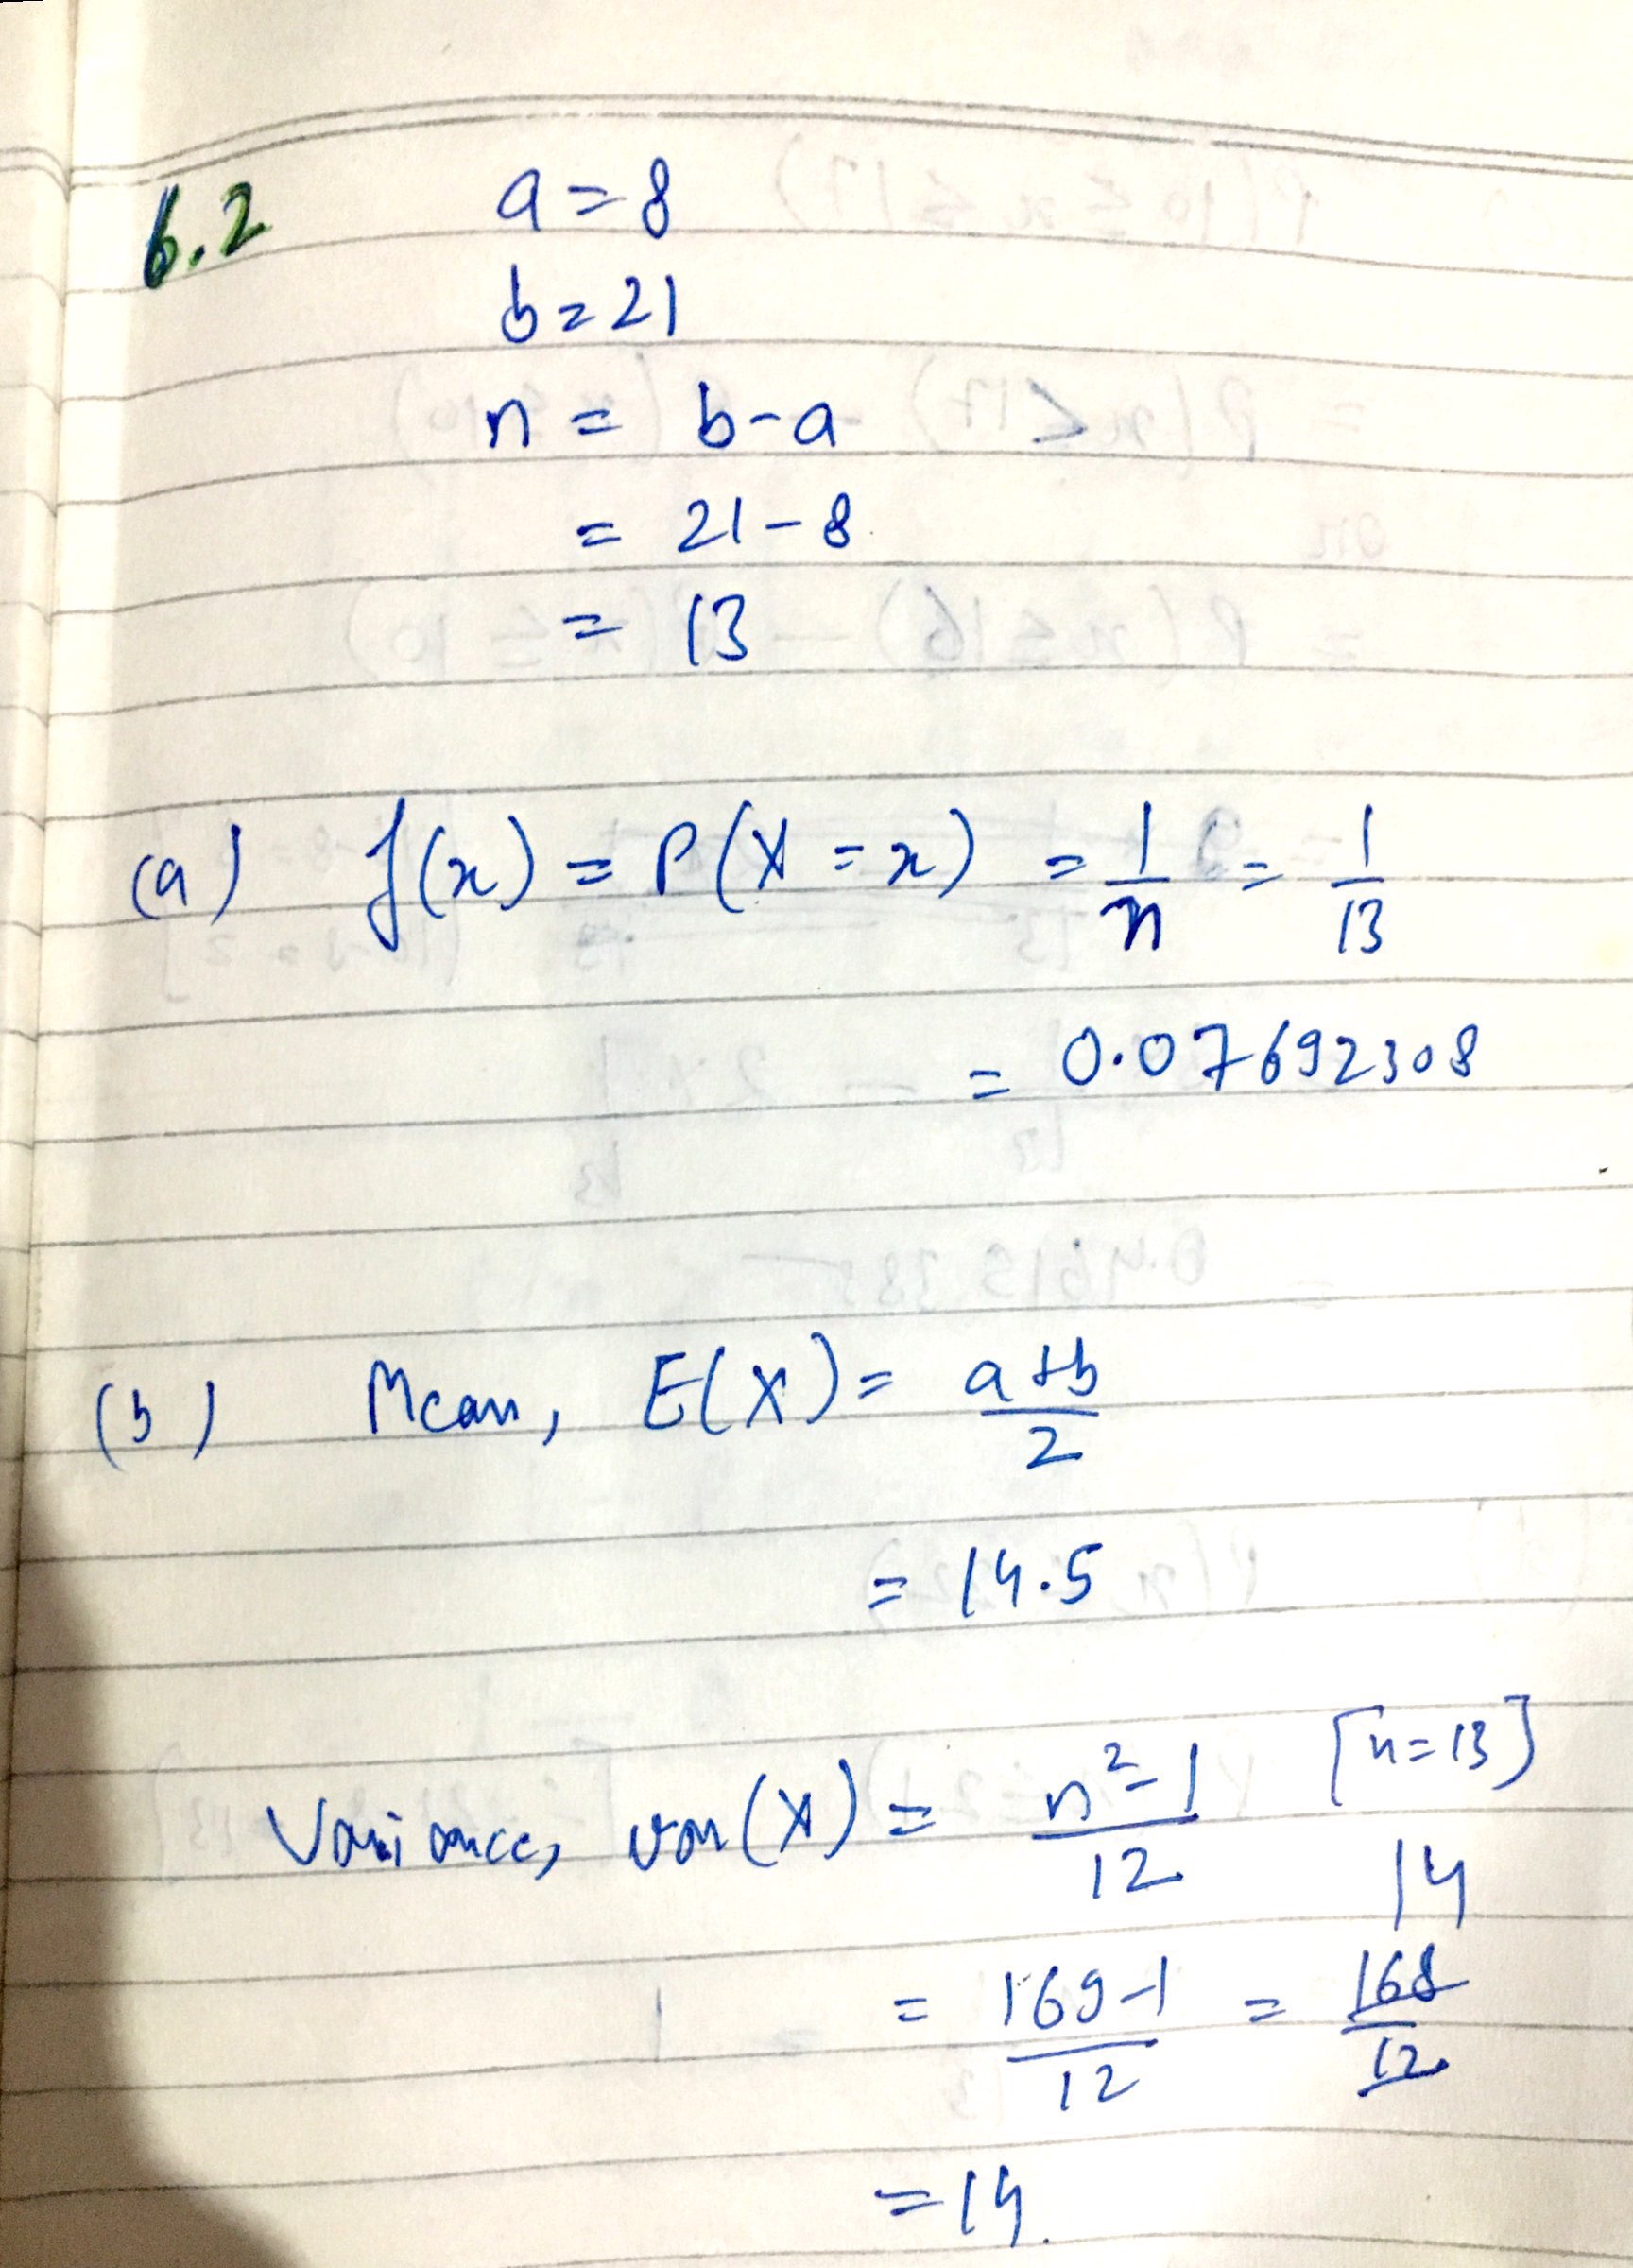 6.2 a = 8
b = 21
n = b - a
= 21 - 8
= 13
(a) f(x) = P(X = x) = 1/n = 1/13
= 0.07692308
(b) Mean, E(X) = a+b/2
= 14.5
Variance, var(X) = n²-1/12 [n=13]
14
= 169-1/12 = 168/12
= 14.